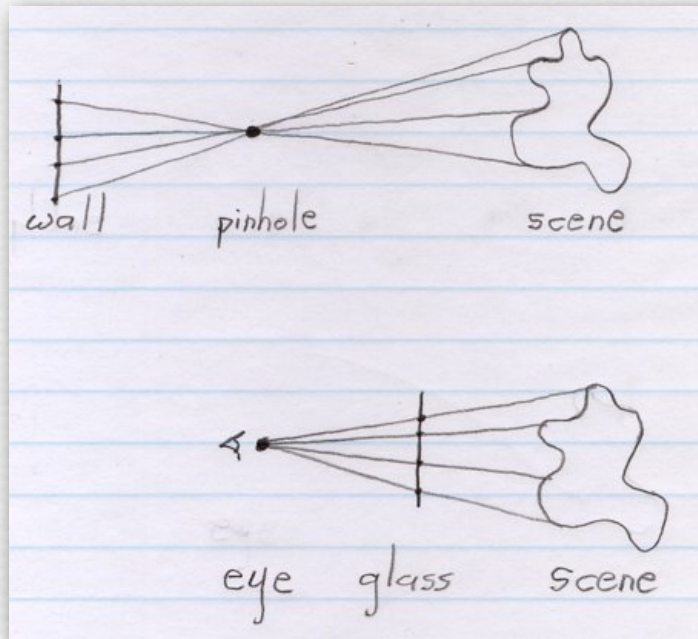 wall pinhole scene
eye glass scene